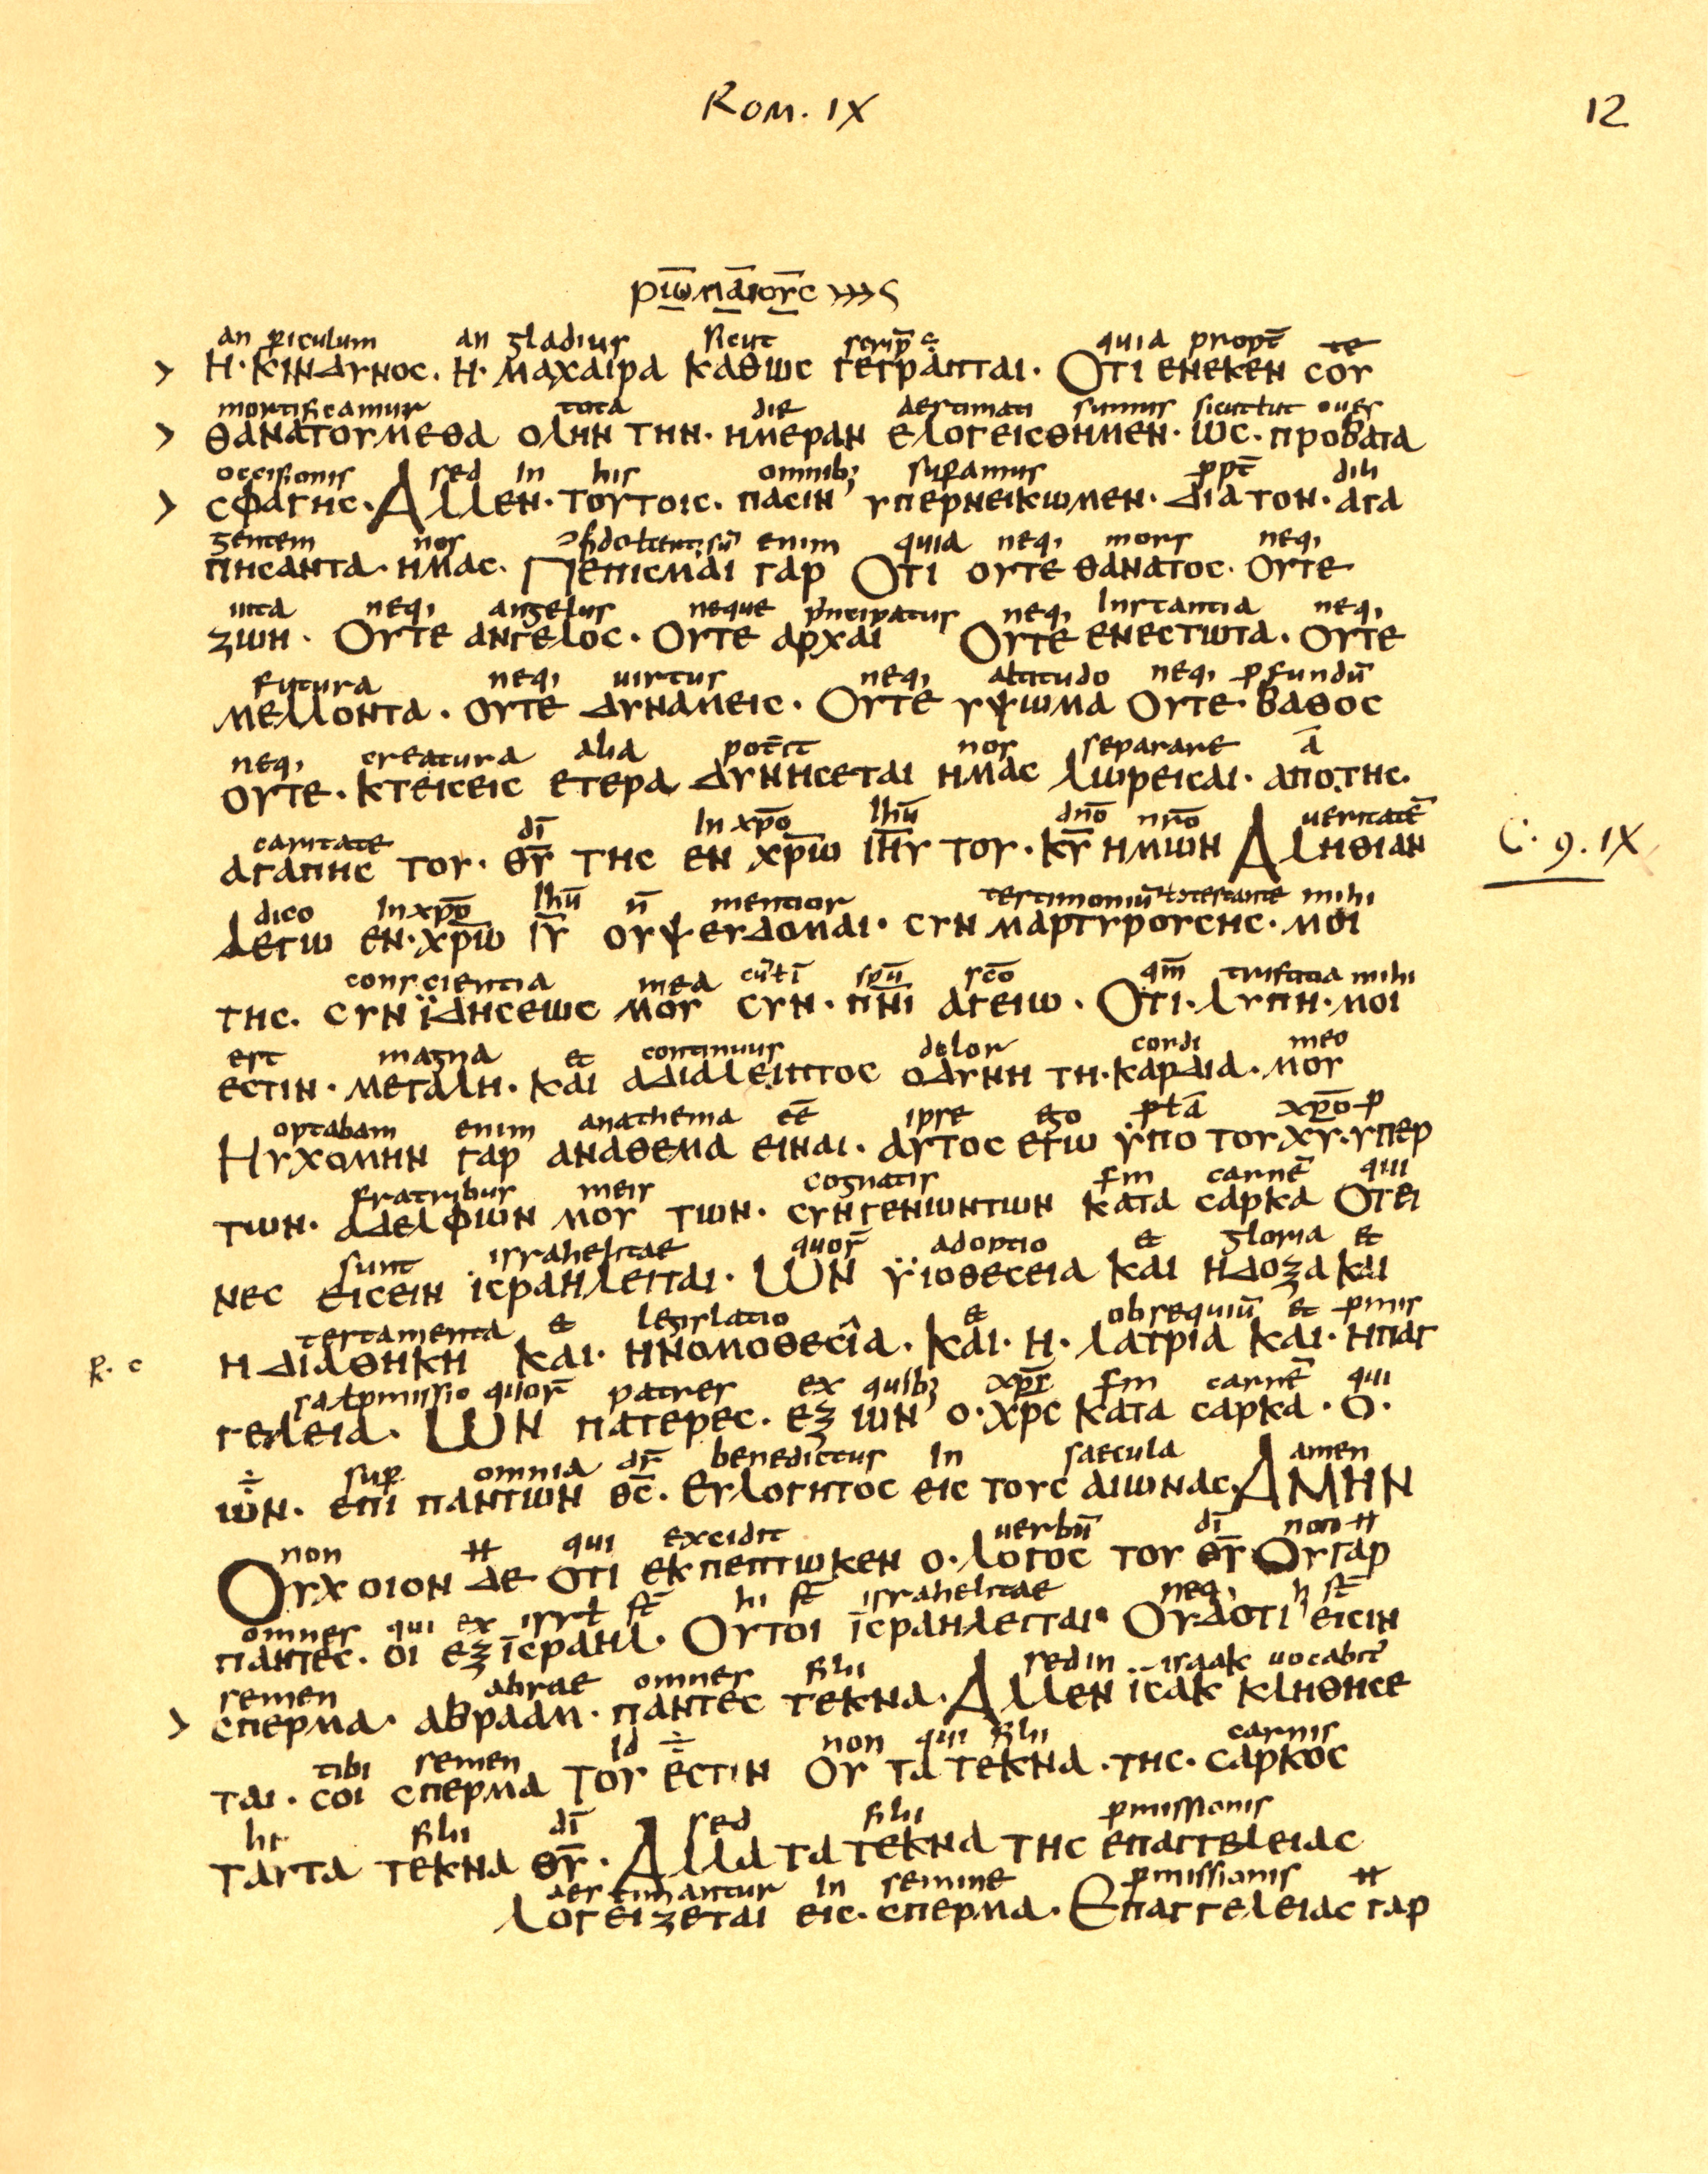 Rom. IX
12
ρι̅ω̅μα̅ιου̅ς
an periculum an gladius sicut scrip̅ quia propt̅ te
Η· ΚΙΝΔΥΝΟC. Η· ΜΑΧΑΙΡΑ ΚΑΘΩC ΓΕΓΡΑΠΤΑΙ· ΟΤΙ ΕΝΕΚΕΝ CΟΥ
mortificamur tota die aestimati sumus sicut ɫut oues
ΘΑΝΑΤΟΥΜΕΘΑ ΟΛΗΝ ΤΗΝ· ΗΜΕΡΑΝ ΕΛΟΓΕΙCΘΗΜΕΝ· ΩC· ΠΡΟΒΑΤΑ
occisionis sed in his omnib; superamus ppt̅ dili
CΦΑΓΗC· ΑΛΛΕΝ· ΤΟΥΤΟΙC· ΠΑCΙΝ ΥΠΕΡΝΕΙΚΩΜΕΝ· ΔΙΑ ΤΟΝ· ΑΓΑ
gentem nos enim quia neq; mors neq;
ΠΗCΑΝΤΑ· ΗΜΑC· ΠΕΠΙCΜΑΙ ΓΑΡ ΟΤΙ ΟΥΤΕ ΘΑΝΑΤΟC· ΟΥΤΕ
uita neq; angelus neque principatus neq; instantia neq;
ΖΩΗ· ΟΥΤΕ ΑΝΓΕΛΟC· ΟΥΤΕ ΑΡΧΑΙ ΟΥΤΕ ΕΝΕCΤΩΤΑ· ΟΥΤΕ
futura neq; uirtus neq; altitudo neq; pfundu̅
ΜΕΛΛΟΝΤΑ· ΟΥΤΕ ΔΥΝΑΜΕΙC· ΟΥΤΕ ΥΨΩΜΑ ΟΥΤΕ· ΒΑΘΟC
neq; creatura alia pot̅it nos separare a̅
ΟΥΤΕ· ΚΤΕΙCΕΙC ΕΤΕΡΑ ΔΥΝΗCΕΤΑΙ ΗΜΑC ΛΩΡΕΙCΑΙ· ΑΠΟ ΤΗC·
caritate di̅ in xp̅o ihu̅ dno̅ nr̅o ueritate̅
ΑΓΑΠΗC ΤΟΥ· Θ̅Υ̅ ΤΗC ΕΝ Χ̅Ρ̅Ω̅ Ι̅Η̅Υ̅ ΤΟΥ· Κ̅Υ̅ ΗΜΩΝ ΑΛΗΘΙΑΝ
C. 9. IX
dico in xp̅o ihu̅ n̅ mentior testimoniu̅ ɫ contestante mihi
ΛΕΓΩ ΕΝ· Χ̅Ρ̅Ω̅ Ι̅Υ̅ ΟΥΨΕΥΔΟΜΑΙ· CΥΝ ΜΑΡΤΥΡΟΥCΗC· ΜΟΙ
conscientia mea sp̅u sc̅o qm̅ tristitia mihi
ΤΗC· CΥΝΪΔΗCΕΩC ΜΟΥ CΥΝ· Π̅Ν̅Ι̅ ΑΓΕΙΩ· ΟΤΙ· ΛΥΠΗ· ΜΟΙ
est magna et continuus dolor cordi meo
ΕCΤΙΝ· ΜΕΓΑΛΗ· ΚΑΙ ΑΔΙΑΛΕΙΠΤΟC ΟΔΥΝΗ ΤΗ· ΚΑΡΔΙΑ· ΜΟΥ
optabam enim anathema ee̅ ipse ego p ɫ a̅ xp̅o p
ΗΥΧΟΜΗΝ ΓΑΡ ΑΝΑΘΕΜΑ ΕΙΝΑΙ· ΑΥΤΟC ΕΓΩ ΫΠΟ ΤΟΥ ΧΥ· ΥΠΕΡ
fratribus meis cognatis sm carne̅ qui
ΤΩΝ· ΑΔΕΛΦΩΝ ΜΟΥ ΤΩΝ· CΥΝΓΕΝΩΝΤΩΝ ΚΑΤΑ CΑΡΚΑ ΟΤΕΙ
sunt israhelitae quor̅ adoptio et gloria et
ΝΕC ΕΙCΕΙΝ ΙCΡΑΗΛΕΙΤΑΙ· ΩΝ ΫΙΟΘΕCΕΙΑ ΚΑΙ ΗΔΟΞΑ ΚΑΙ
testamenta et legislatio et obsequiu̅ et pmis
Η ΔΙΑΘΗΚΗ ΚΑΙ· ΗΝΟΜΟΘΕCΙΑ· ΚΑΙ· Η· ΛΑΤΡΙΑ ΚΑΙ· ΗΠΑΓ
R. c
sa ɫ pmissio quor̅ patres ex quib; xp̅s sm carne̅ qui
ΓΕΛΕΙΑ· ΩΝ ΠΑΤΕΡΕC· ΕΞ ΩΝ Ο· ΧΡC ΚΑΤΑ CΑΡΚΑ· Ο·
÷ sup omnia ds̅ benedictus in saecula amen
ΩΝ· ΕΠΙ ΠΑΝΤΩΝ Θ̅C̅· ΕΥΛΟΓΗΤΟC ΕΙC ΤΟΥC ΑΙΩΝΑC· ΑΜΗΝ
non ⧺ qui excidit uerbu̅ di̅ non ⧺
ΟΥΧ ΟΙΟΝ ΔΕ ΟΤΙ ΕΚΠΕΠΤΩΚΕΝ Ο· ΛΟΓΟC ΤΟΥ Θ̅Υ̅ ΟΥΓΑΡ
omnes qui ex isrɫ st̅ hi st̅ israhelitae neq; h st̅
ΠΑΝΤΕC· ΟΙ ΕΞ ΙCΡΑΗΛ· ΟΥΤΟΙ ΙCΡΑΗΛΕΙΤΑΙ· ΟΥΔΟΤΙ ΕΙCΙΝ
semen abrae omnes filii sed in isaak uocabit᾽
CΠΕΡΜΑ· ΑΒΡΑΑΜ· ΠΑΝΤΕC ΤΕΚΝΑ· ΑΛΛΕΝ ΪCΑΚ ΚΛΗΘΗCΕ
tibi semen id ÷ non qui filii carnis
ΤΑΙ· CΟΙ CΠΕΡΜΑ ΤΟΥ ΕCΤΙΝ ΟΥ ΤΑ ΤΕΚΝΑ· ΤΗC· CΑΡΚΟC
hi filii di̅ sed filii pmissionis
ΤΑΥΤΑ ΤΕΚΝΑ Θ̅Υ̅· ΑΛΛΑ ΤΑ ΤΕΚΝΑ ΤΗC ΕΠΑΓΓΕΛΕΙΑC
aestimantur in semine pmissionis ⧺
ΛΟΓΕΙΖΕΤΑΙ ΕΙC· CΠΕΡΜΑ· ΕΠΑΓΓΕΛΕΙΑC ΓΑΡ